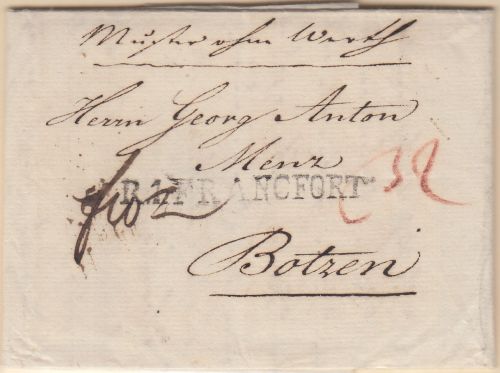 Muster ohne Werth
Herrn Georg Anton
Menz
R.1.FRANCFORT
32
Botzen